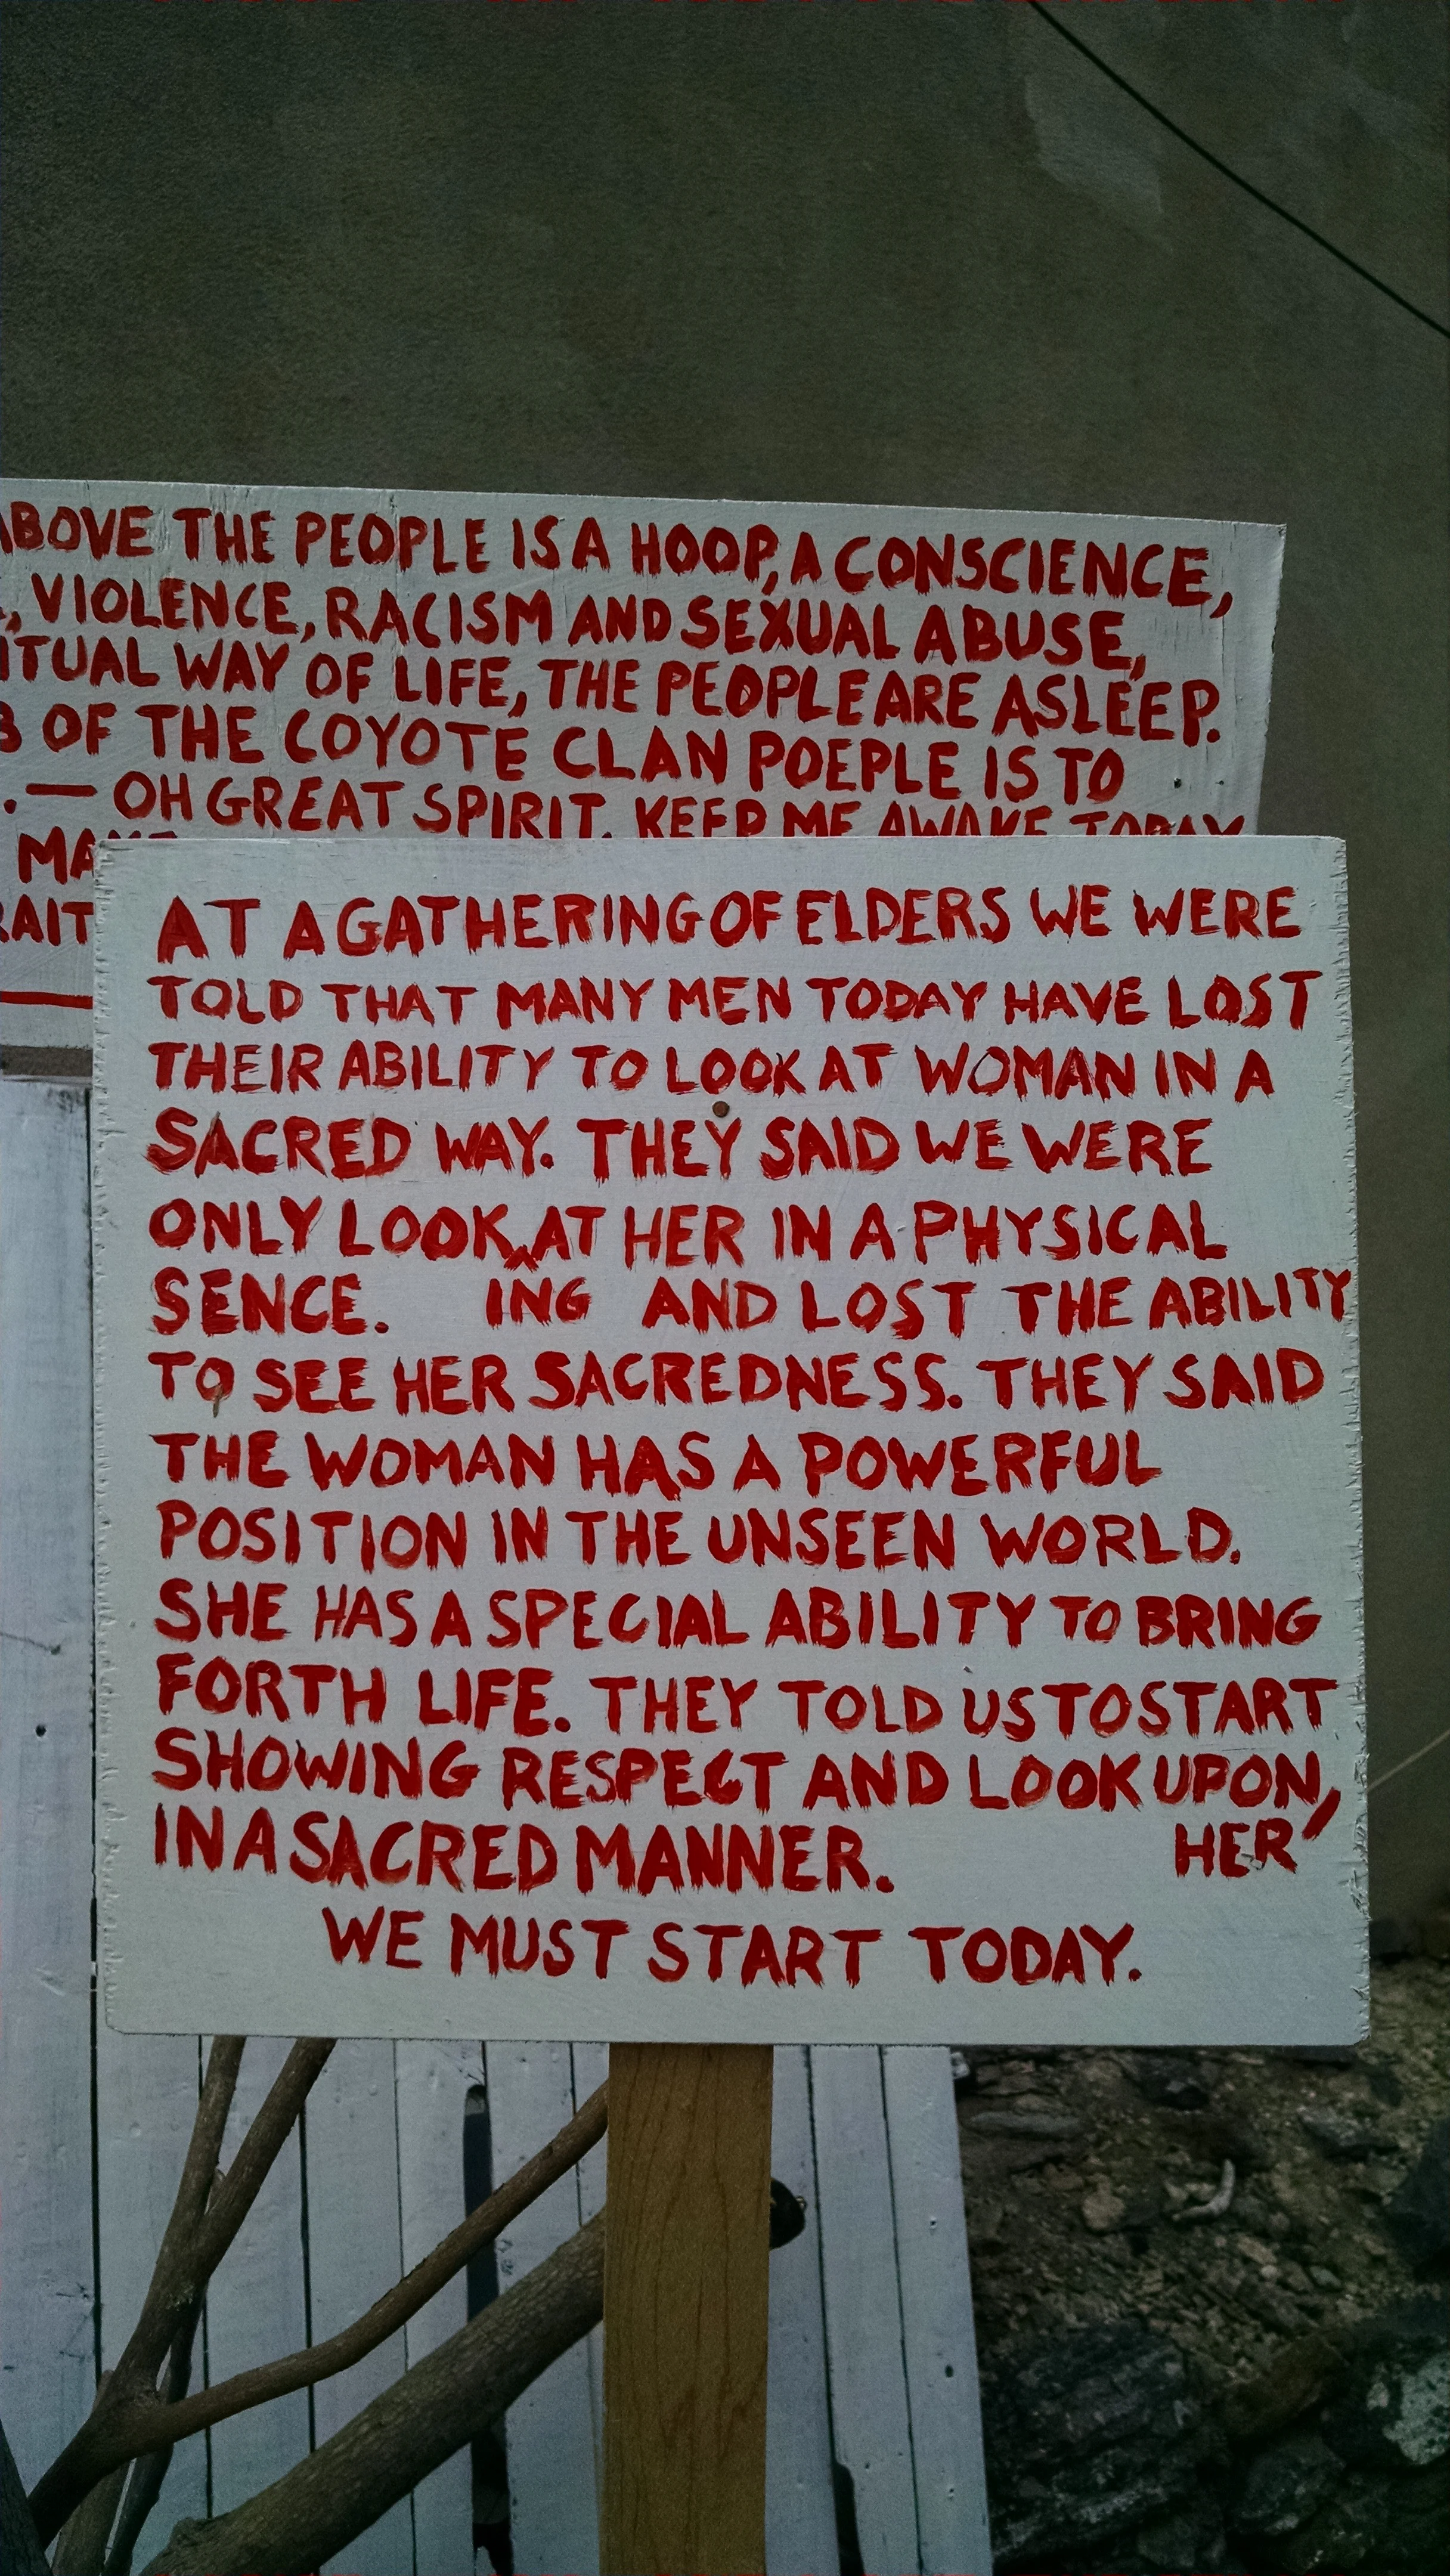 ABOVE THE PEOPLE IS A HOOP, A CONSCIENCE,
, VIOLENCE, RACISM AND SEXUAL ABUSE,
WAY OF LIFE, THE PEOPLE ARE ASLEEP.
OF THE COYOTE CLAN POEPLE IS TO
. — OH GREAT SPIRIT, KEEP ME AWAKE TODAY
AT A GATHERING OF ELDERS WE WERE
TOLD THAT MANY MEN TODAY HAVE LOST
THEIR ABILITY TO LOOK AT WOMAN IN A
SACRED WAY. THEY SAID WE WERE
ONLY LOOK AT HER IN A PHYSICAL
SENCE. ING AND LOST THE ABILITY
TO SEE HER SACREDNESS. THEY SAID
THE WOMAN HAS A POWERFUL
POSITION IN THE UNSEEN WORLD.
SHE HAS A SPECIAL ABILITY TO BRING
FORTH LIFE. THEY TOLD US TO START
SHOWING RESPECT AND LOOK UPON,
IN A SACRED MANNER. HER
WE MUST START TODAY.